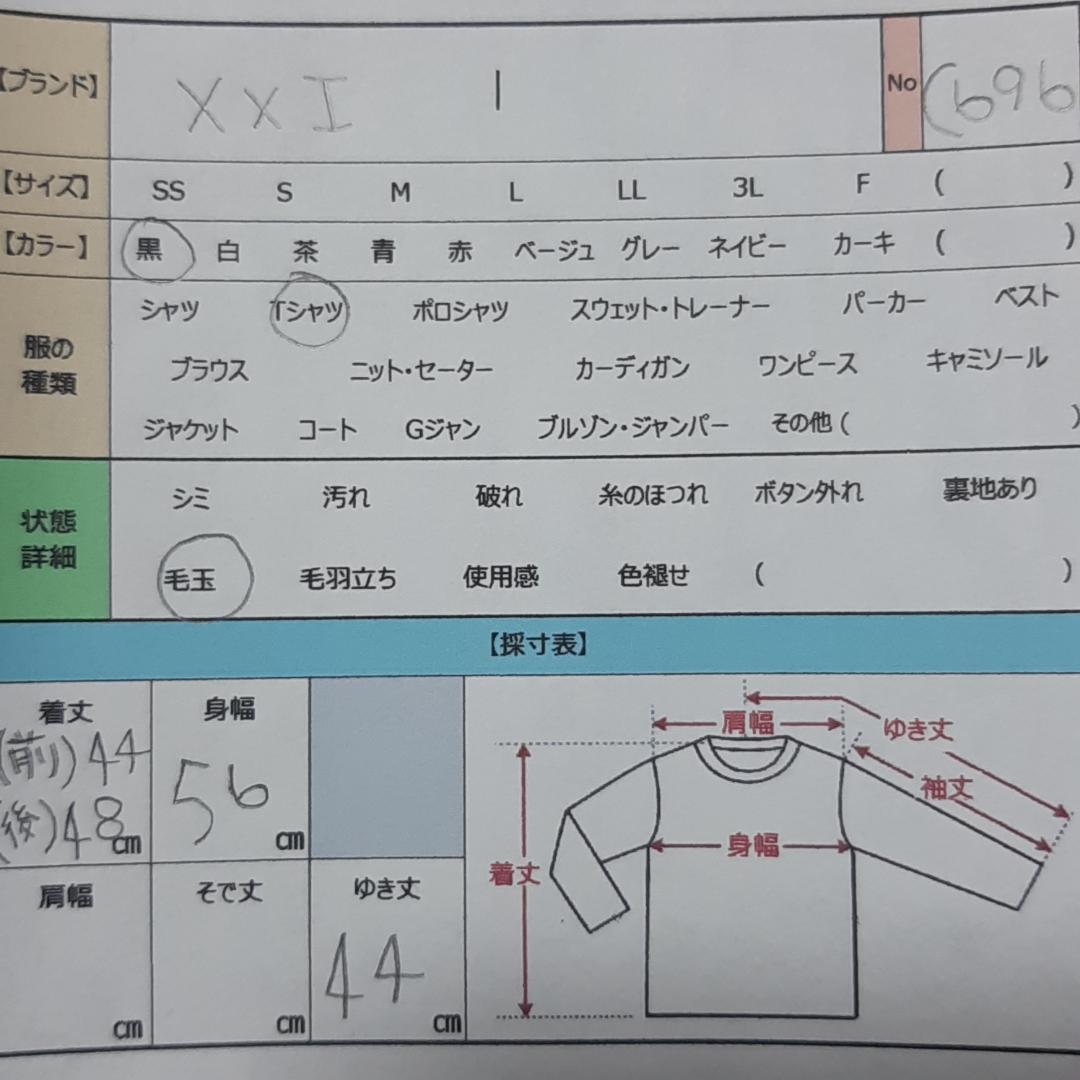 【ブランド】 XXI | No (696
【サイズ】 SS S M L LL 3L F ( )
【カラー】 黒 白 茶 青 赤 ベージュ グレー ネイビー カーキ ( )
服の種類
シャツ Tシャツ ポロシャツ スウェット・トレーナー パーカー ベスト
ブラウス ニット・セーター カーディガン ワンピース キャミソール
ジャケット コート Gジャン ブルゾン・ジャンパー その他 ( )
状態詳細
シミ 汚れ 破れ 糸のほつれ ボタン外れ 裏地あり
毛玉 毛羽立ち 使用感 色褪せ ( )
【採寸表】
着丈 身幅
(前)44
(後)48cm 56cm
肩幅 そで丈 ゆき丈
cm cm 44cm
肩幅
ゆき丈
袖丈
身幅
着丈